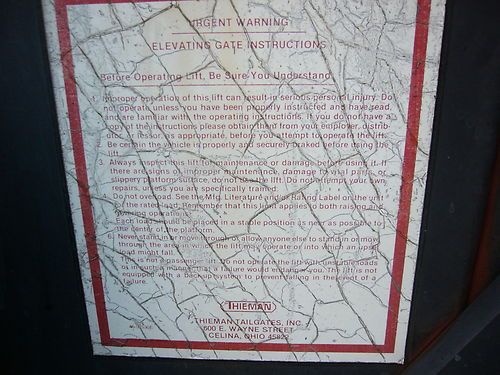 URGENT WARNING
ELEVATING GATE INSTRUCTIONS
Before Operating Lift, Be Sure You Understand
1. Improper operation of this lift can result in serious personal injury. Do
not operate unless you have been properly instructed and have read,
and are familiar with the operating instructions. If you do not have a
copy of the instructions please obtain them from your employer, distrib-
utor, or lessor, as appropriate, before you attempt to operate the lift.
Be certain the vehicle is properly and securely braked before using the
lift.
3. Always inspect this lift for maintenance or damage before using it. If
there are signs of improper maintenance, damage to vital parts, or
slippery platform surface, do not use the lift. Do not attempt your own
repairs, unless you are specifically trained.
Do not overload. See the Mfg. Literature and/or Rating Label on the unit
for the rated load. Remember that this limit applies to both raising and
lowering operations.
Each load should be placed in a stable position as near as possible to
the center of the platform.
6. Never stand in, or move through or allow anyone else to stand in or move
through the area in which the lift may operate or into which an
load might fall.
This is not a passenger lift. Do not operate the lift with unstable loads
or in such a manner that a failure would endanger you. The lift is not
equipped with a back-up system to prevent falling in the event of a
failure.
THIEMAN
THIEMAN TAILGATES, INC.
600 E. WAYNE STREET
CELINA, OHIO 45822